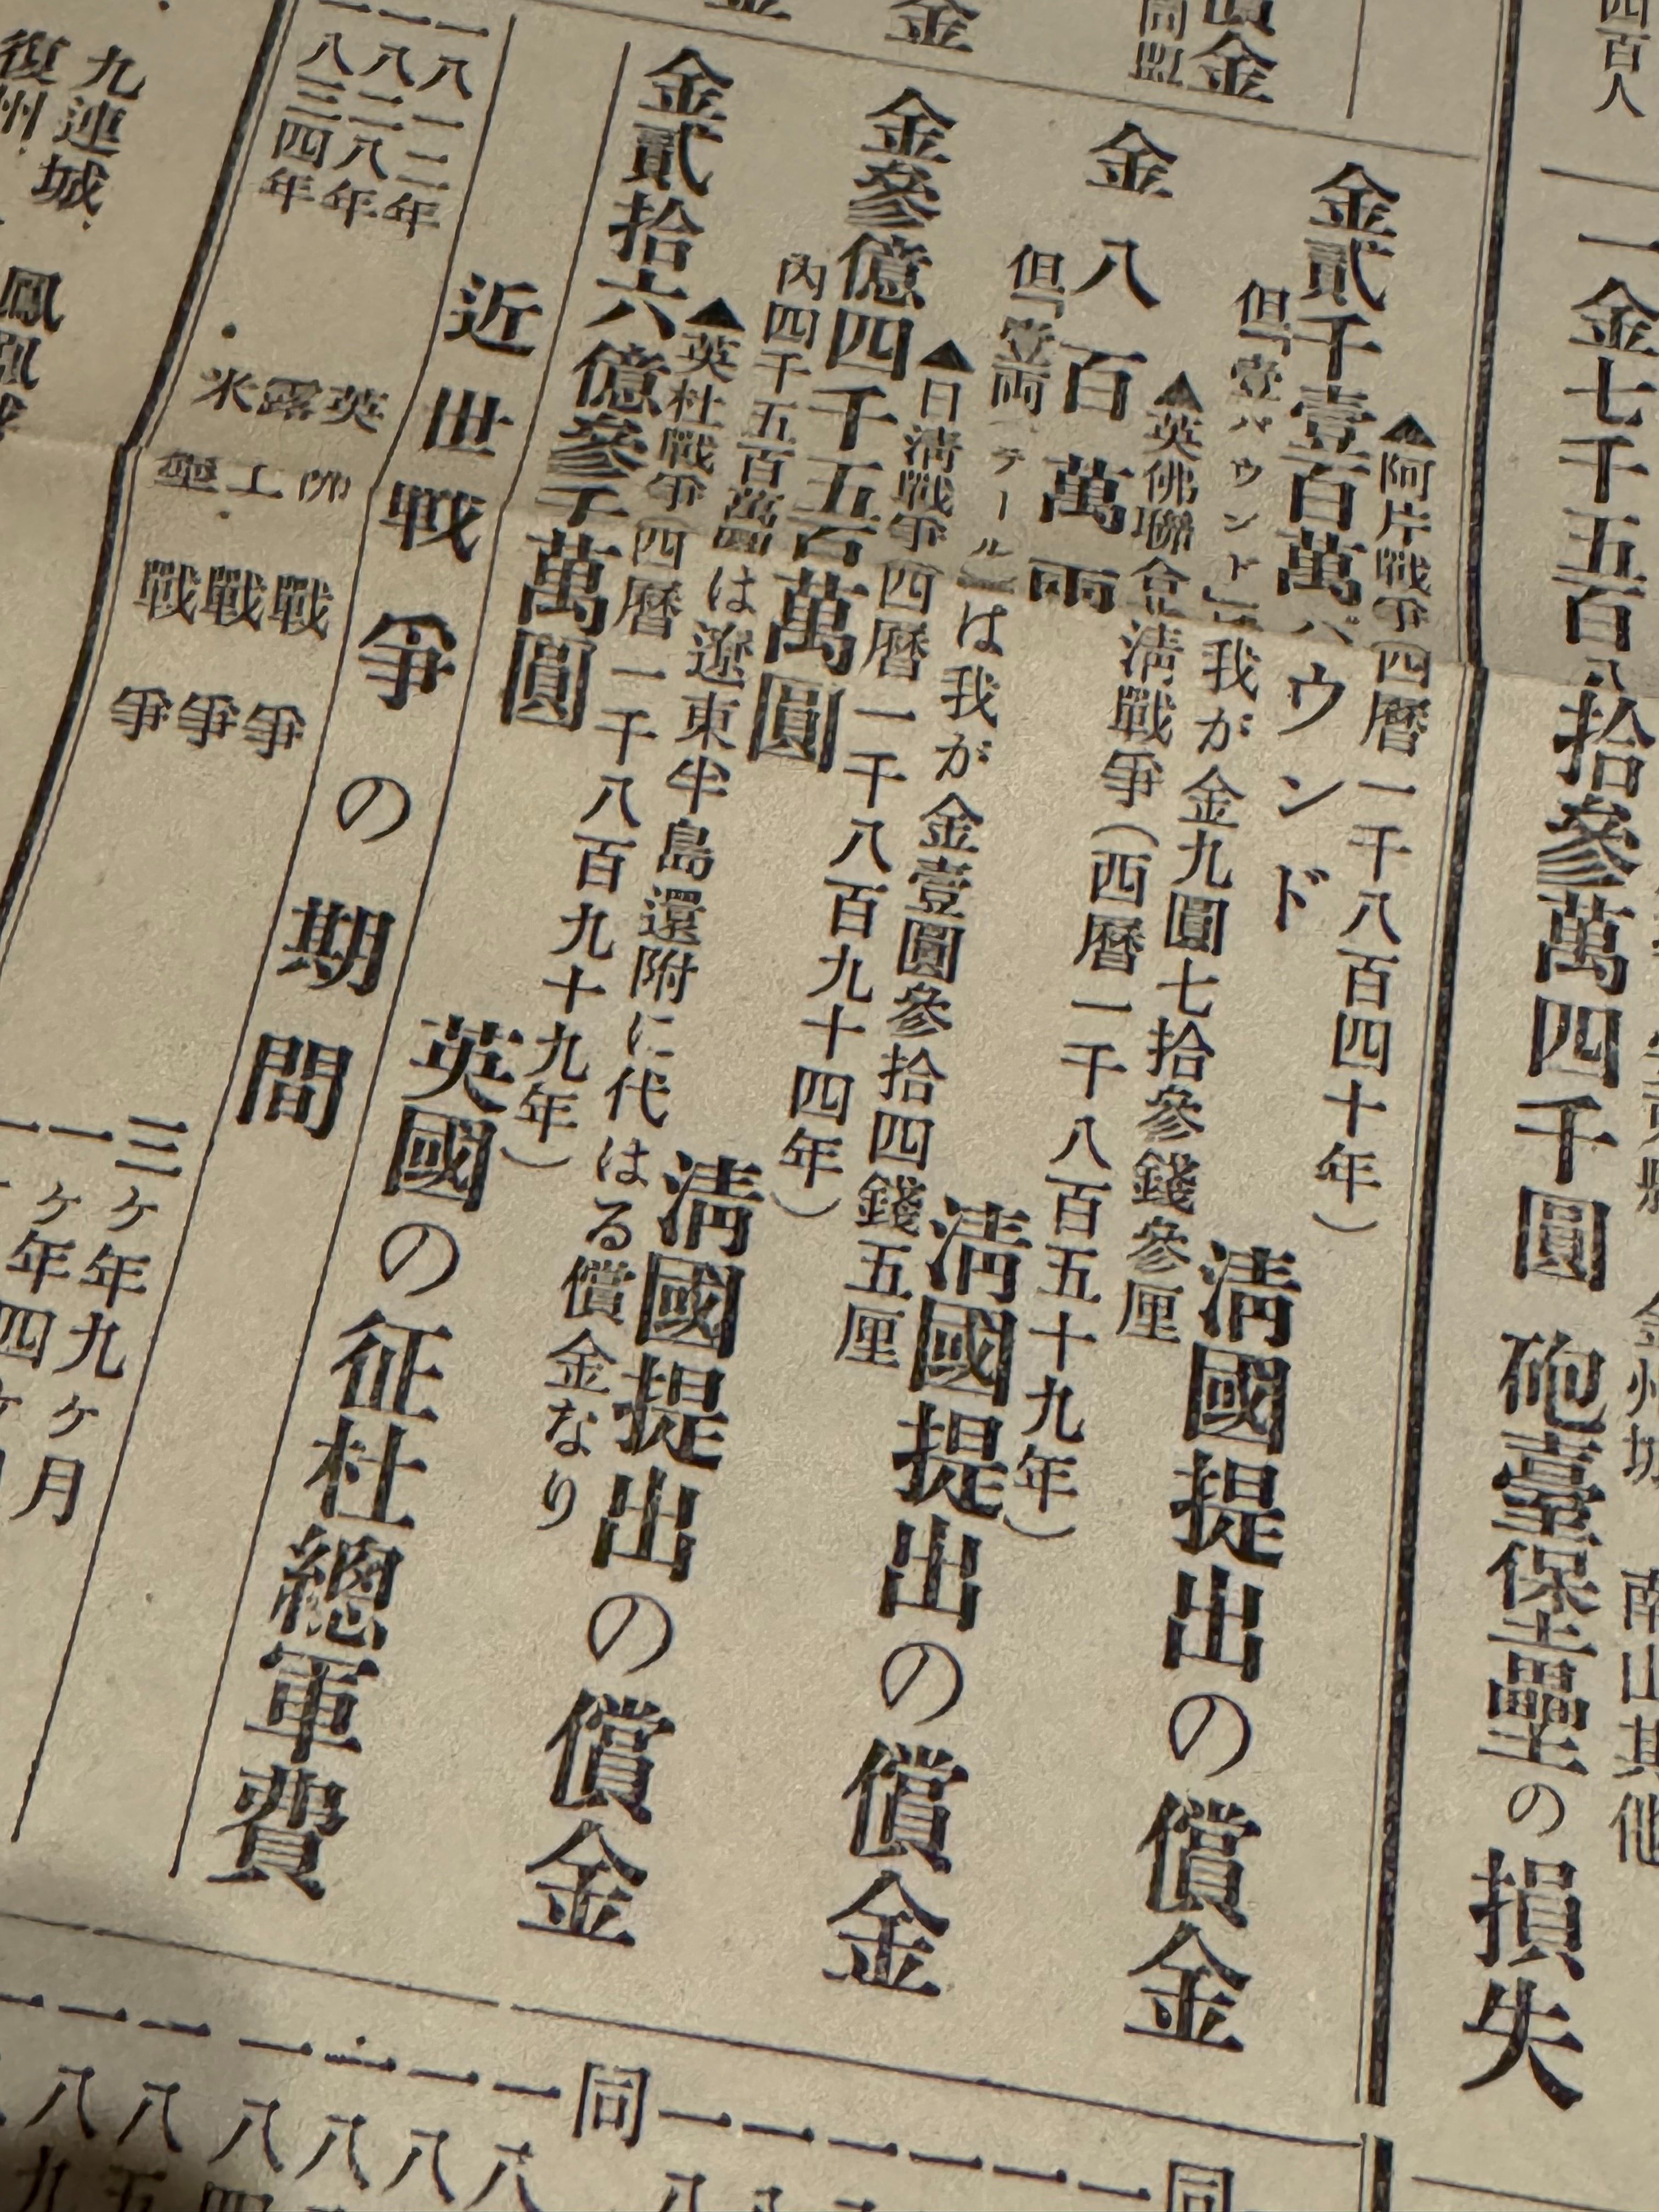 四百人
一金七千五百八拾參萬四千圓 砲臺保壘の損失
南山其他
償金
同盟
金
金
▲阿片戰爭(西曆一千八百四十年)
金貳千壹百萬パウンド 淸國提出の償金
但「壹パウンド」は我が金九圓七拾參錢參厘
▲英佛聯合淸戰爭(西曆一千八百五十九年)
金八百萬兩 淸國提出の償金
但「壹兩テール」は我が金壹圓參拾四錢五厘
▲日淸戰爭(西曆一千八百九十四年)
金參億四千五百萬圓 淸國提出の償金
內四千五百萬圓は遼東半島還附に代はる償金なり
▲英杜戰爭(西曆一千八百九十九年)
金貳拾六億參千萬圓 英國の征杜總軍費
近世戰爭の期間
一八一二年 英佛戰爭 三ヶ年九ヶ月
一八二八年 露土戰爭 一ヶ年四ヶ月
一八三四年 米墨戰爭
九連城、鳳凰城
復州、
同
同